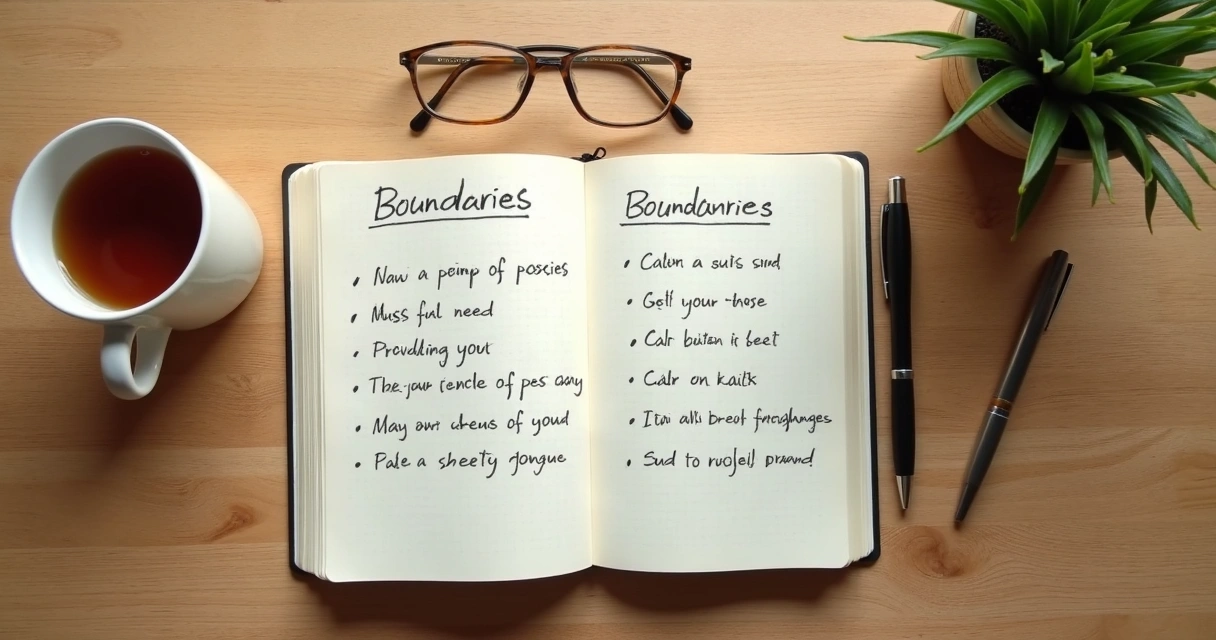 Boundaries
• Naw a peinp of poscies
• Muss ful need
• Provdding yout
• The your tencle of pes aany
• May own uteus of youd
• Pale a sheety gongue
Boundanries
• Calun a suis sind
• Gell your -hose
• Calr button is beet
• Calr on kaitk
• Itw alli breot
• Sud to